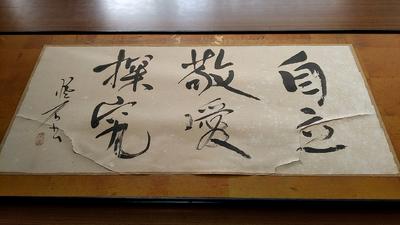 自立
敬愛
探究